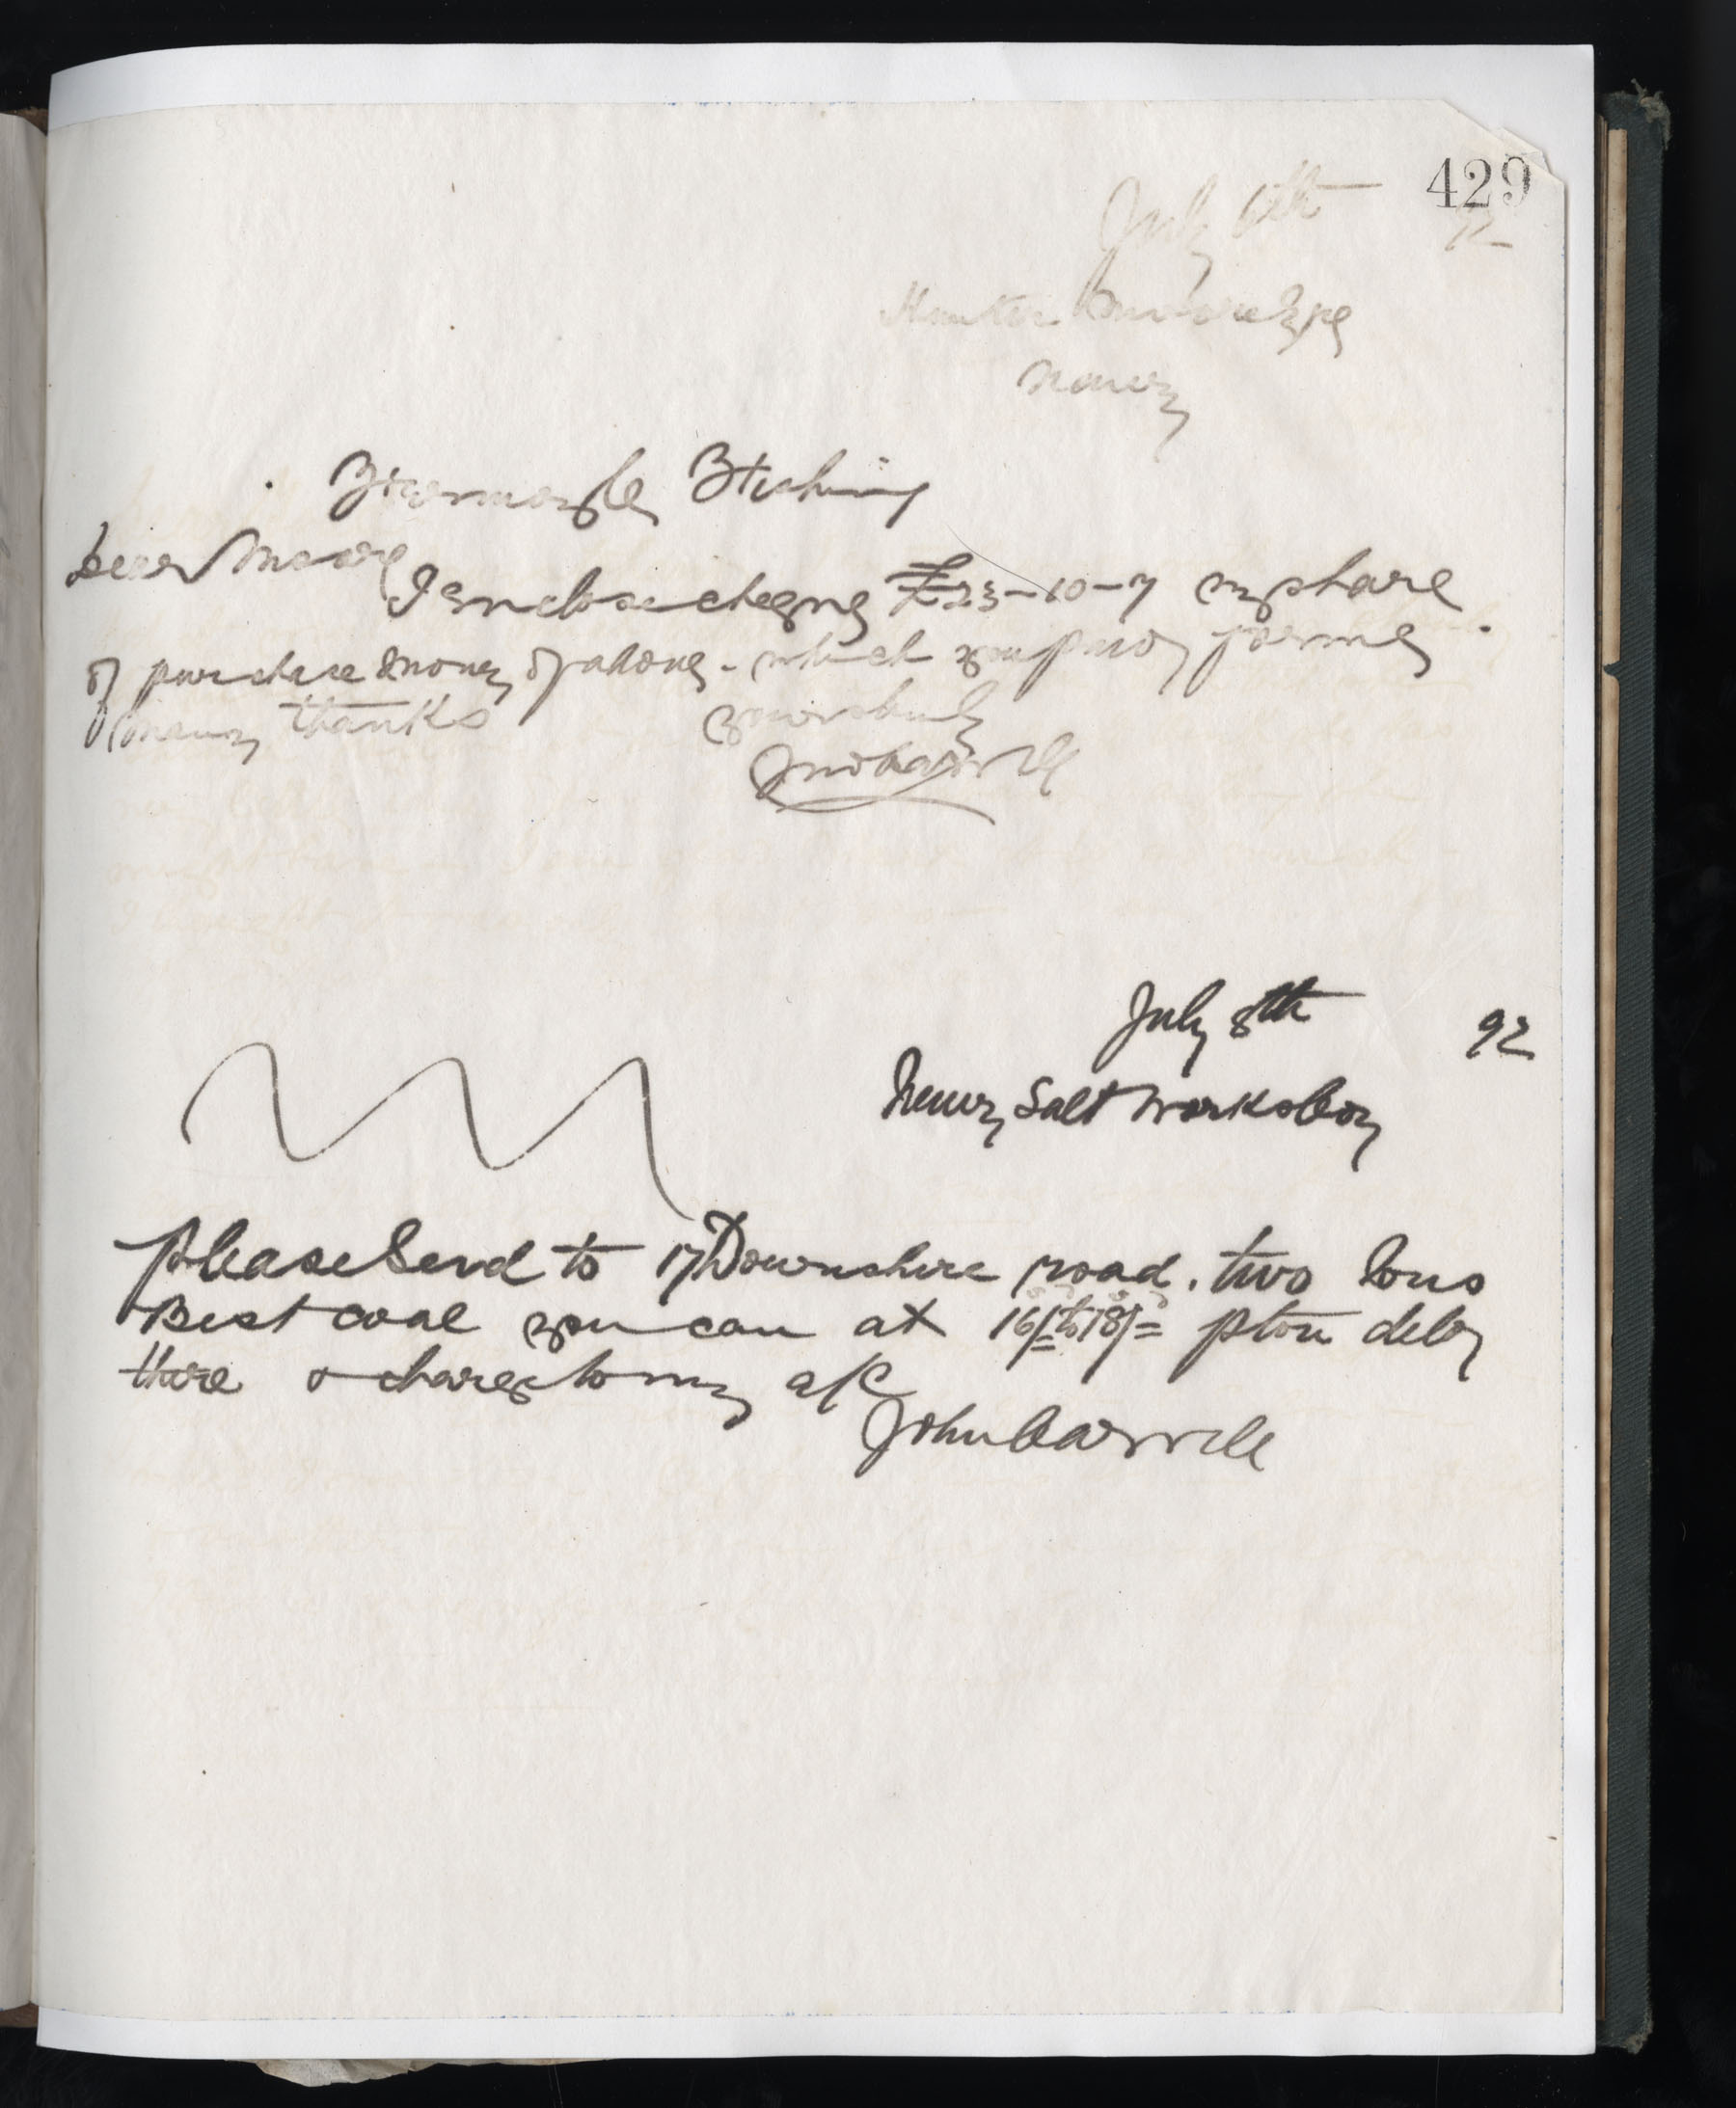 429
July 6th 92
Hunter Moore Esqe
Newry
Fishing
Dear Moore
I enclose cheque £23-10-7 my share
of purchase money of above - which you paid for me
many thanks yours truly
Jno Carvill
July 8th 92
Newry Salt Works Coy
Please Send to 17 Downshire road. two tons
Best coal you can at 16/= to 18/= p ton delvy
there & charge to my a/c
John Carvill